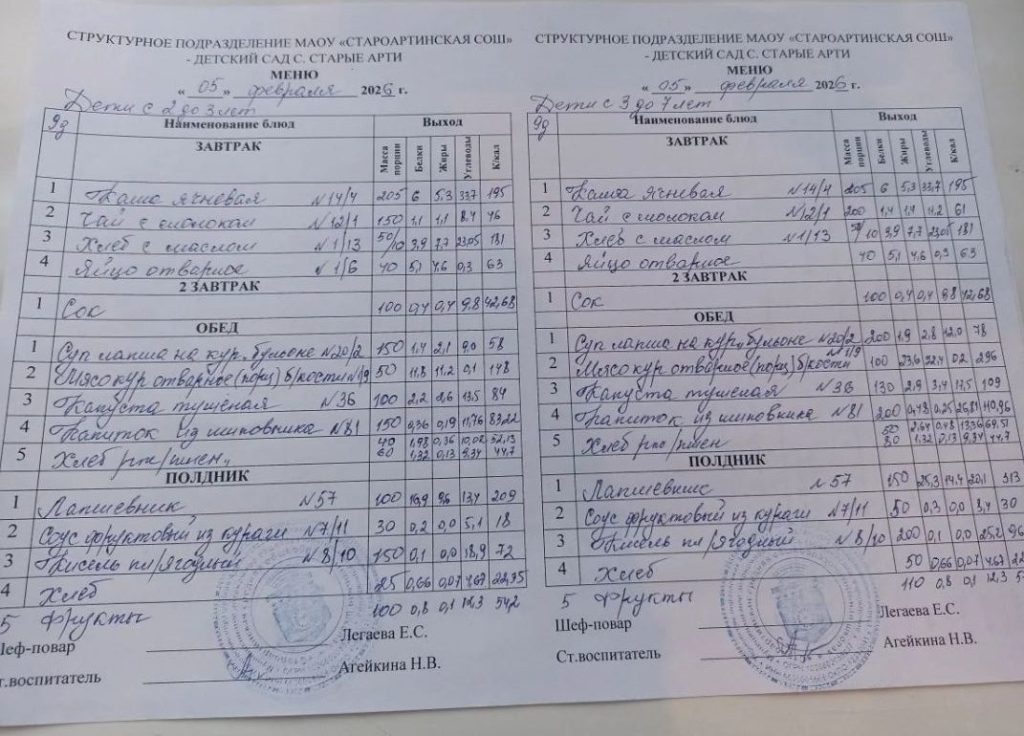 СТРУКТУРНОЕ ПОДРАЗДЕЛЕНИЕ МАОУ «СТАРОАРТИНСКАЯ СОШ»
- ДЕТСКИЙ САД С. СТАРЫЕ АРТИ
МЕНЮ
« 05 » февраля 2026 г.
Дети с 2 до 3 лет
9д Наименование блюд Выход
ЗАВТРАК Масса порции Белки Жиры Углеводы К/кал
1 Каша ячневая №14/4 205 6 5,3 33,7 195
2 Чай с молоком №12/1 150 1,1 1,1 8,4 46
3 Хлеб с маслом №1/13 50/10 3,9 7,7 23,05 181
4 Яйцо отварное №1/6 40 5,1 4,6 0,3 63
2 ЗАВТРАК
1 Сок 100 0,4 0,4 9,8 42,68
ОБЕД
1 Суп лапша на кур. бульоне №20/2 150 1,4 2,1 9,0 58
2 Мясо кур отварное (порц) б/кости №1/9 50 11,8 11,2 0,1 148
3 Капуста тушеная №36 100 2,2 2,6 13,5 84
4 Напиток из шиповника №81 150 0,36 0,19 11,76 83,22
5 Хлеб рж/пшен. 40 1,98 0,36 10,02 52,13
60 1,32 0,13 9,34 44,7
ПОЛДНИК
1 Лапшевник №57 100 16,9 9,6 13,4 209
2 Соус фруктовый из кураги №7/11 30 0,2 0,0 5,1 18
3 Кисель пл/ягодный №8/10 150 0,1 0,0 18,9 72
4 Хлеб 25 0,66 0,07 4,67 22,35
5 Фрукты 100 0,8 0,1 12,3 54,2
Шеф-повар Легаева Е.С.
Ст.воспитатель Агейкина Н.В.
СТРУКТУРНОЕ ПОДРАЗДЕЛЕНИЕ МАОУ «СТАРОАРТИНСКАЯ СОШ»
- ДЕТСКИЙ САД С. СТАРЫЕ АРТИ
МЕНЮ
« 05 » февраля 2026 г.
Дети с 3 до 7 лет
9д Наименование блюд Выход
ЗАВТРАК Масса порции Белки Жиры Углеводы К/кал
1 Каша ячневая №14/4 205 6 5,3 33,7 195
2 Чай с молоком №12/1 200 1,4 1,4 11,2 61
3 Хлеб с маслом №1/13 50/10 3,9 7,7 23,05 181
4 Яйцо отварное 40 5,1 4,6 0,3 63
2 ЗАВТРАК
1 Сок 100 0,4 0,4 9,8 42,68
ОБЕД
1 Суп лапша на кур. бульоне №20/2 200 1,9 2,8 12,0 78
2 Мясо кур отварное (порц) б/кости №1/9 100 23,6 22,4 0,2 296
3 Капуста тушеная №36 130 2,9 3,4 17,5 109
4 Напиток из шиповника №81 200 0,48 0,25 26,81 110,96
5 Хлеб рж/пшен 50 2,64 0,48 13,36 69,51
80 1,32 0,13 9,34 44,7
ПОЛДНИК
1 Лапшевник №57 150 25,3 14,4 20,1 313
2 Соус фруктовый из кураги №7/11 50 0,3 0,0 8,4 30
3 Кисель пл/ягодный №8/10 200 0,1 0,0 25,2 96
4 Хлеб 50 0,66 0,07 4,67
5 Фрукты 110 0,8 0,1 12,3
Шеф-повар Легаева Е.С.
Ст.воспитатель Агейкина Н.В.